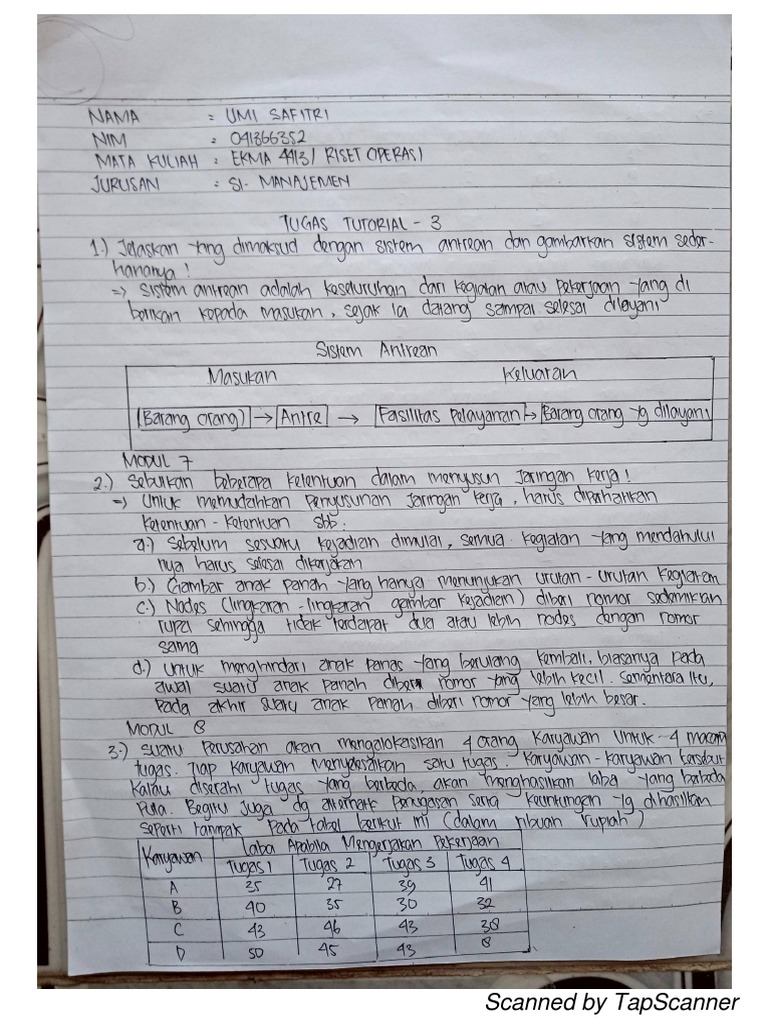 NAMA : UMI SAFITRI
NIM : 041366352
MATA KULIAH : EKMA 4413/ RISET OPERASI
JURUSAN : S1- MANAJEMEN
TUGAS TUTORIAL - 3
1.) Jelaskan yang dimaksud dengan sistem antrean dan gambarkan sistem seder-
hananya !
=> Sistem antrean adalah keseluruhan dari kegiatan atau pekerjaan yang di
berikan kepada masukan, sejak ia datang sampai selesai dilayani
Sistem Antrean
Masukan Keluaran
(Barang orang) → Antre → Fasilitas Pelayanan → Barang orang yg dilayani
MODUL 7
2.) Sebutkan beberapa ketentuan dalam menyusun Jaringan kerja !
=> Untuk memudahkan penyusunan Jaringan kerja, harus diperhatikan
ketentuan - ketentuan sbb.
a.) Sebelum sesuatu kejadian dimulai, semua kegiatan yang mendahului
nya harus selesai dikerjakan
b.) Gambar anak panah yang hanya menunjukan urutan - urutan kegiatan
c.) Nodes (lingkaran - lingkaran gambar kejadian) diberi nomor sedemikian
rupa sehingga tidak terdapat dua atau lebih nodes dengan nomor
sama
d.) Untuk menghindari anak panas yang berulang kembali, biasanya pada
awal suatu anak panah diberi nomor yang lebih kecil. Sementara itu,
pada akhir suatu anak panah diberi nomor yang lebih besar.
MODUL 8
3.) Suatu Perusahan akan mengalokasikan 4 orang karyawan untuk 4 macam
tugas. Tiap karyawan menyelesaikan satu tugas. Karyawan - karyawan tersebut
kalau diserahi tugas yang berbeda, akan menghasilkan laba yang berbeda
pula. Begitu juga dg alternatif penugasan serta keuntungan yg dihasilkan
seperti tampak pada tabel berikut ini (dalam ribuan rupiah)
Karyawan Laba Apabila Mengerjakan Pekerjaan
Tugas 1 Tugas 2 Tugas 3 Tugas 4
A 35 27 39 41
B 40 35 30 32
C 43 46 43 38
D 50 45 43 8
Scanned by TapScanner